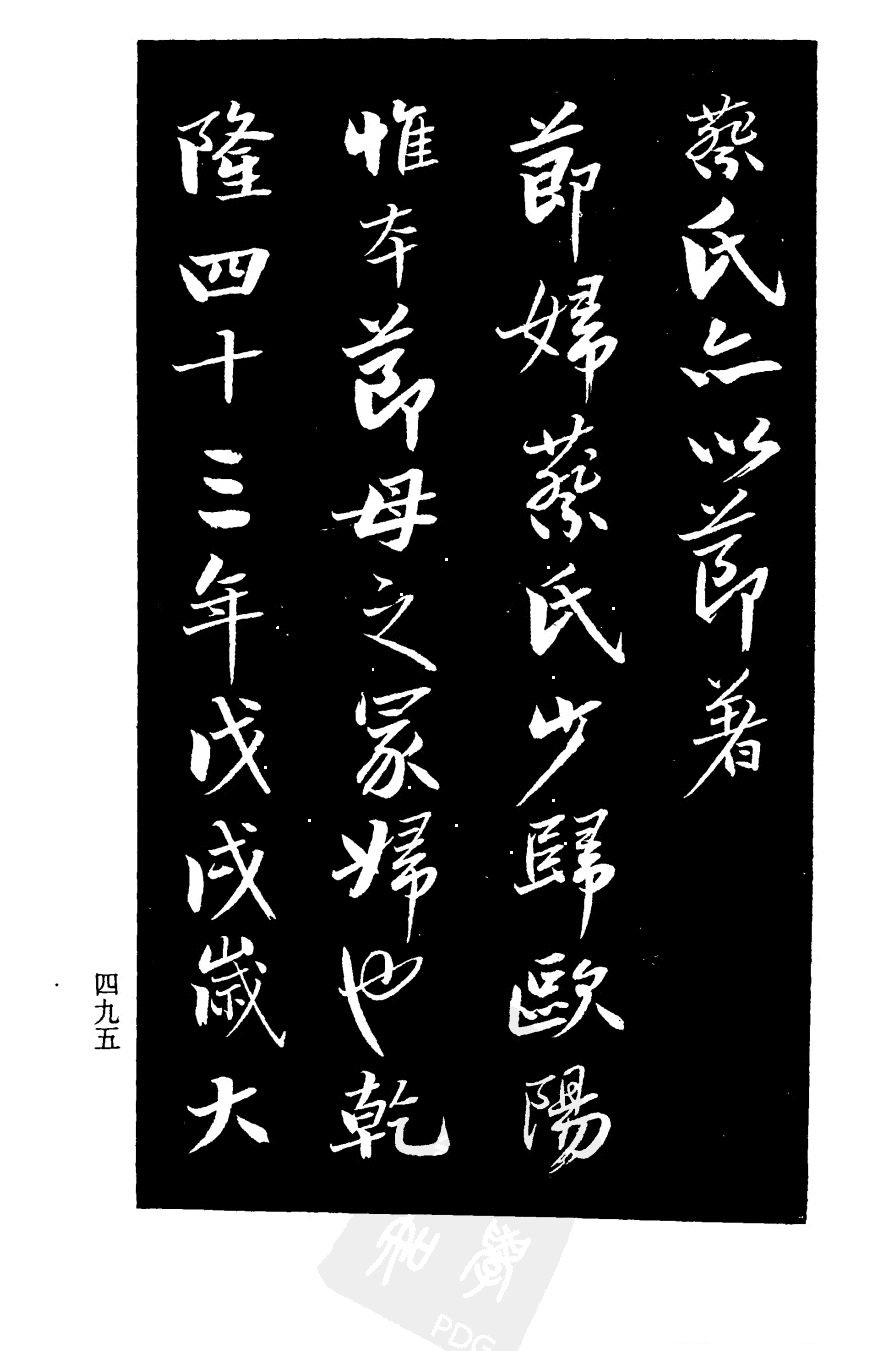 蔡氏亦以節著
節婦蔡氏少歸歐陽
惟本節母之冡婦也乾
隆四十三年戊戌歲大
四九五
PDG